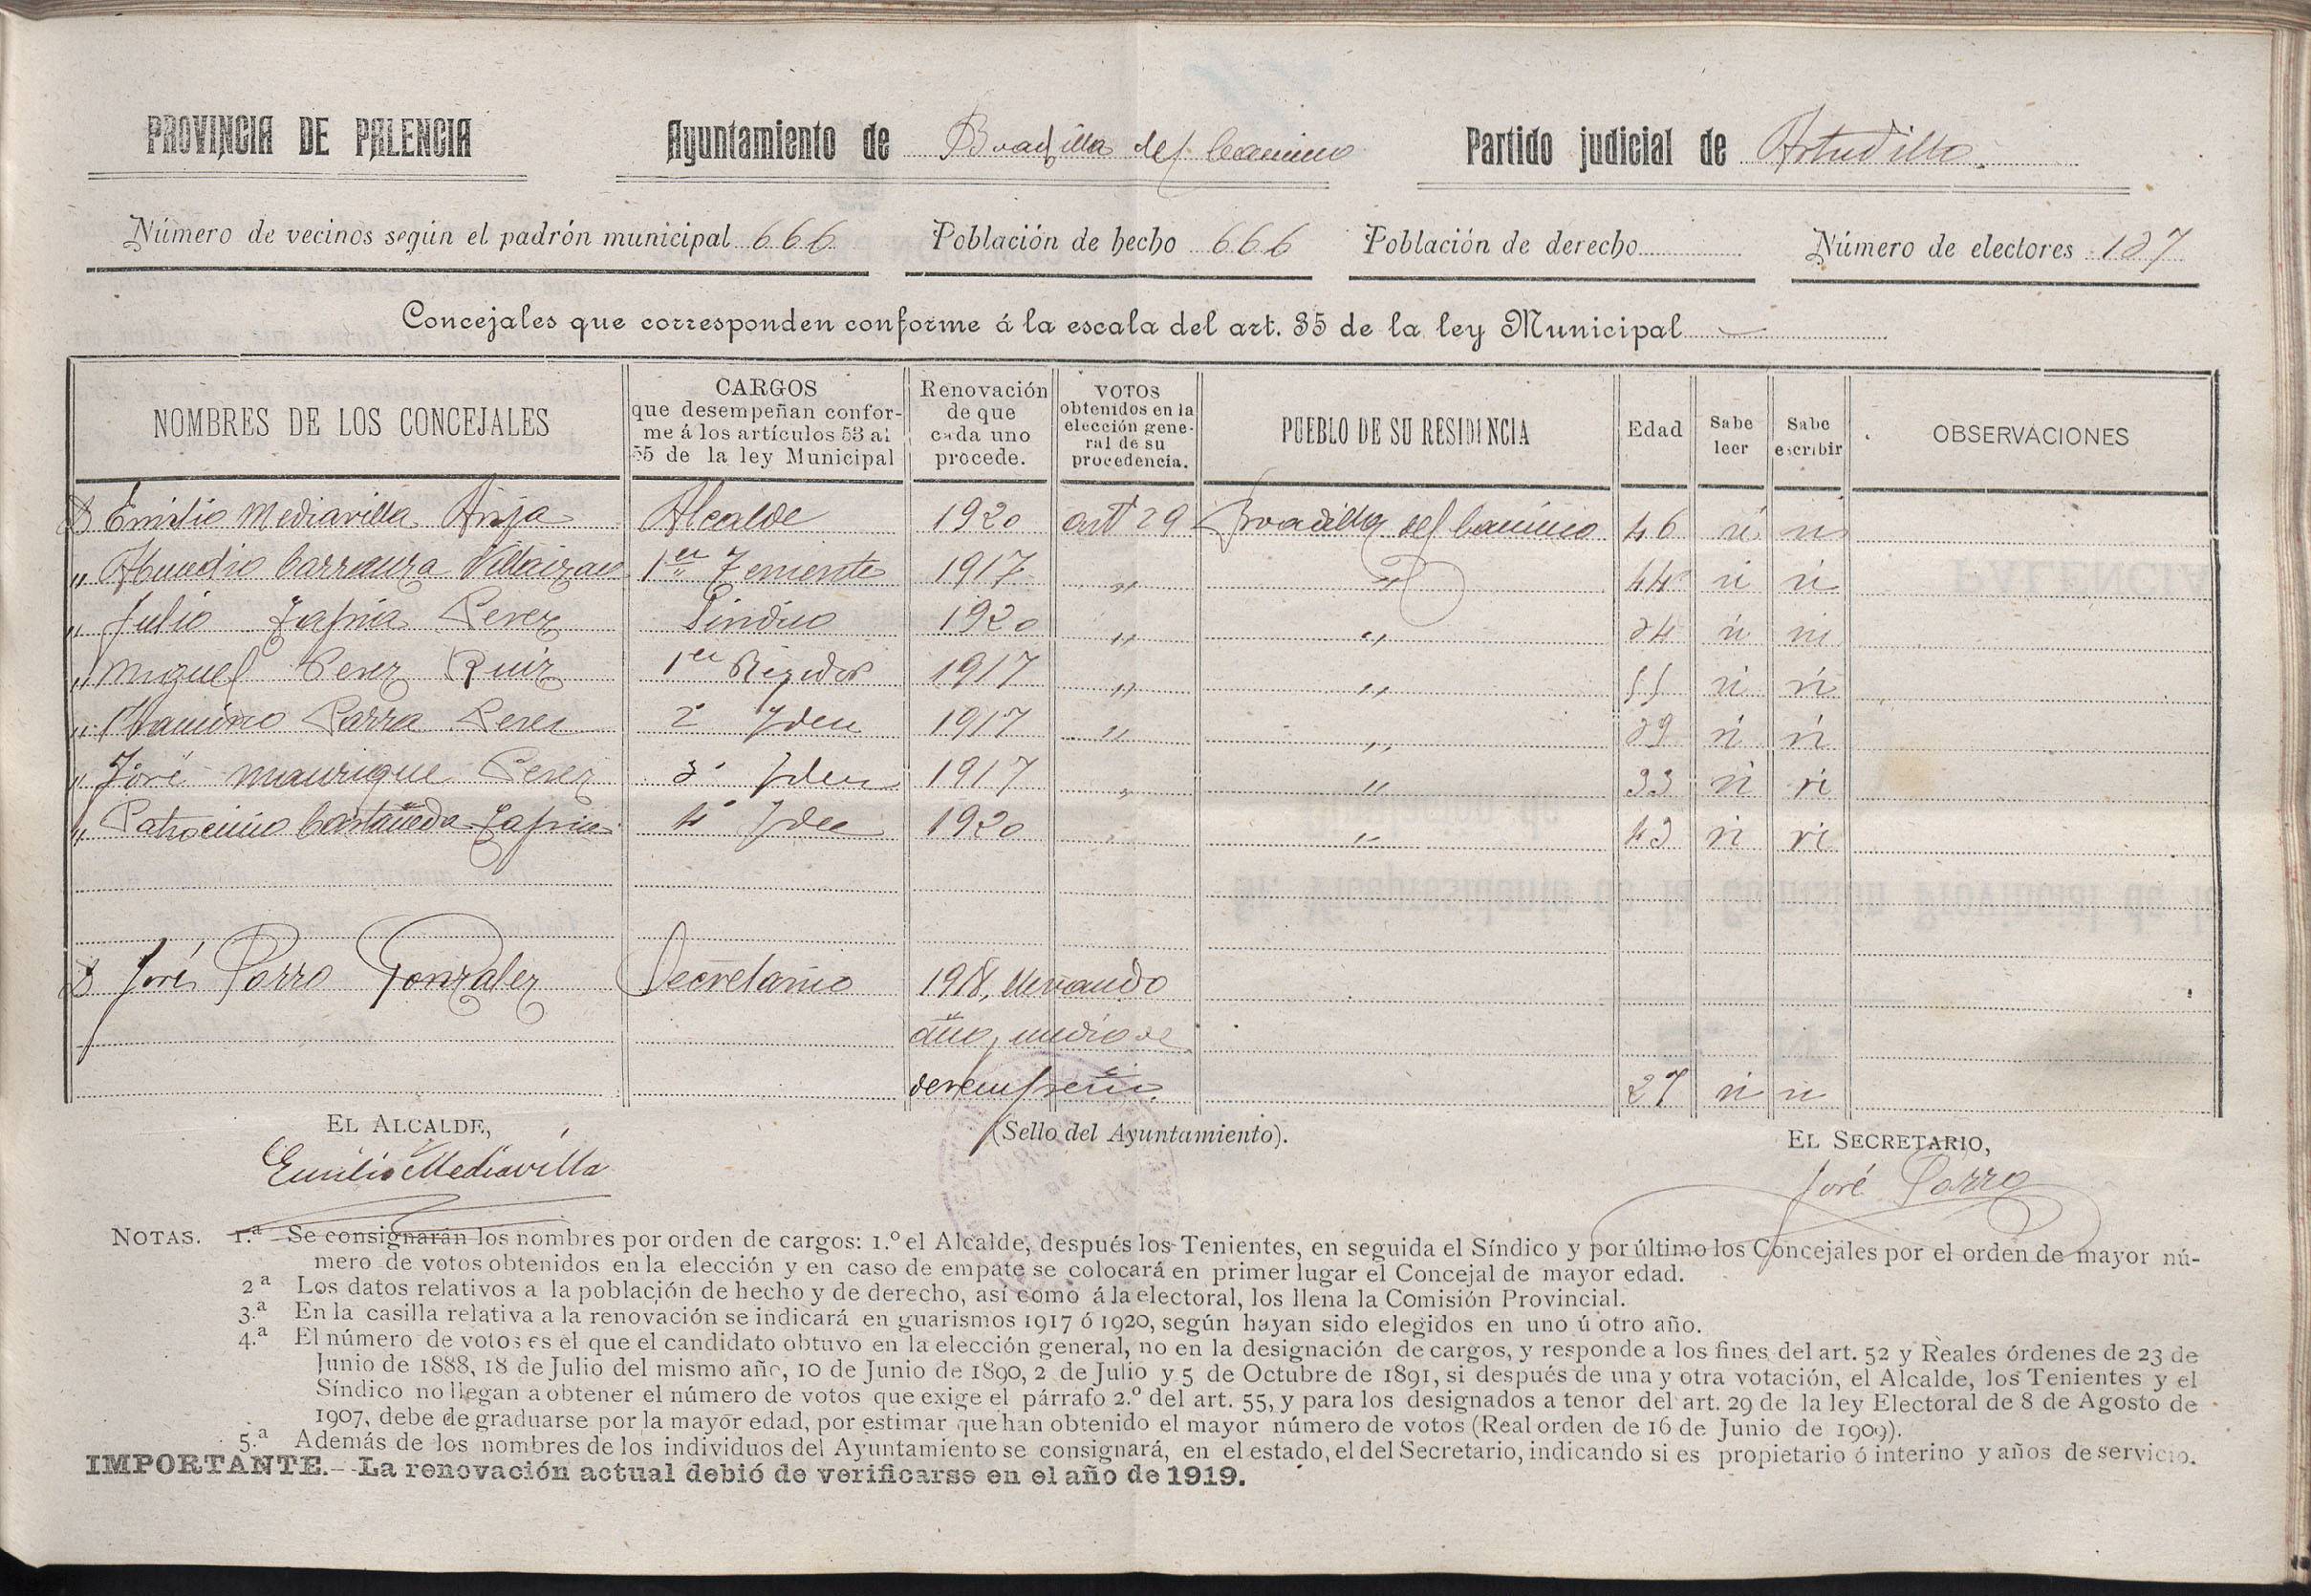 PROVINCIA DE PALENCIA Ayuntamiento de Boadilla del Camino Partido judicial de Astudillo.
Número de vecinos según el padrón municipal 666 Población de hecho 666 Población de derecho Número de electores 187
Concejales que corresponden conforme á la escala del art. 35 de la ley Municipal
NOMBRES DE LOS CONCEJALES CARGOS que desempeñan conforme á los artículos 53 al 55 de la ley Municipal Renovación de que cada uno procede. VOTOS obtenidos en la elección general de su procedencia. PUEBLO DE SU RESIDENCIA Edad Sabe leer Sabe escribir OBSERVACIONES
D Emilio Mediavilla Alcalde 1920 art 29 Boadilla del Camino 46 si si
" Carranza 1er Teniente 1917 " " 44 si si
" Julio Tapia Perez Sindico 1920 " " 34 si si
" Miguel Perez Ruiz 1er Regidor 1917 " " 55 si si
" Parra Perez 2º Iden 1917 " " 39 si si
" José Manrique Perez 3º Iden 1917 " " 33 si si
" Patrocinio Castañeda Tapia 4º Iden 1920 " " 43 si si
D José Porro Gonzalez Secretario 1918, llevando
año y medio de
desempeño. 27 si si
EL ALCALDE, (Sello del Ayuntamiento). EL SECRETARIO,
Emilio Mediavilla José Porro
NOTAS. 1.ª Se consignarán los nombres por orden de cargos: 1.º el Alcalde, después los Tenientes, en seguida el Síndico y por último los Concejales por el orden de mayor nú-
mero de votos obtenidos en la elección y en caso de empate se colocará en primer lugar el Concejal de mayor edad.
2ª Los datos relativos a la población de hecho y de derecho, así como á la electoral, los llena la Comisión Provincial.
3.ª En la casilla relativa a la renovación se indicará en guarismos 1917 ó 1920, según hayan sido elegidos en uno ú otro año.
4.ª El número de votos es el que el candidato obtuvo en la elección general, no en la designación de cargos, y responde a los fines del art. 52 y Reales órdenes de 23 de
Junio de 1888, 18 de Julio del mismo año, 10 de Junio de 1890, 2 de Julio y 5 de Octubre de 1891, si después de una y otra votación, el Alcalde, los Tenientes y el
Síndico no llegan a obtener el número de votos que exige el párrafo 2.º del art. 55, y para los designados a tenor del art. 29 de la ley Electoral de 8 de Agosto de
1907, debe de graduarse por la mayor edad, por estimar que han obtenido el mayor número de votos (Real orden de 16 de Junio de 1909).
5.ª Además de los nombres de los individuos del Ayuntamiento se consignará, en el estado, el del Secretario, indicando si es propietario ó interino y años de servicio.
IMPORTANTE.—La renovación actual debió de verificarse en el año de 1919.